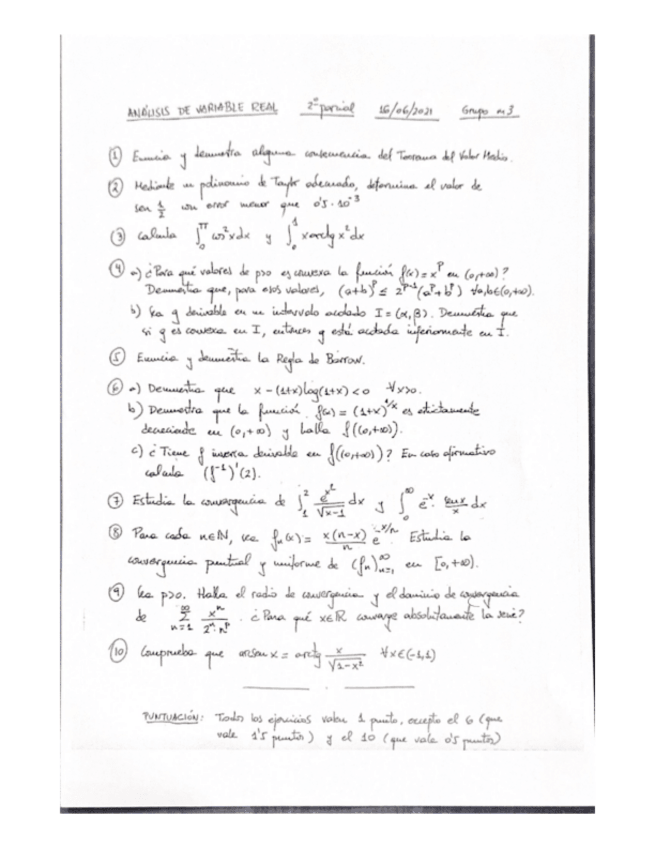 ANÁLISIS DE VARIABLE REAL 2º parcial 16/06/2021 Grupo m3
① Enuncia y demuestra alguna consecuencia del Teorema del Valor Medio.
② Mediante un polinomio de Taylor adecuado, determina el valor de
sen 1/2 con error menor que 0'5·10⁻³
③ Calcula ∫₀^π cos²x dx y ∫₀¹ x arctg x² dx
④ a) ¿Para qué valores de p>0 es convexa la función f(x)=x^p en (0,+∞)?
Demuestra que, para esos valores, (a+b)^p ≤ 2^(p-1)(a^p+b^p) ∀a,b∈(0,+∞).
b) Sea g derivable en un intervalo acotado I=(α,β). Demuestra que
si g es convexa en I, entonces g está acotada inferiormente en I.
⑤ Enuncia y demuestra la Regla de Barrow.
⑥ a) Demuestra que x-(1+x)log(1+x)<0 ∀x>0.
b) Demuestra que la función f(x)=(1+x)^(1/x) es estrictamente
decreciente en (0,+∞) y halla f((0,+∞)).
c) ¿Tiene f inversa derivable en f((0,+∞))? En caso afirmativo
calcula (f⁻¹)'(2).
⑦ Estudia la convergencia de ∫₁² e^(x²)/√(x-1) dx y ∫₀^∞ e^(-x) · sen x/x dx
⑧ Para cada n∈ℕ, sea fₙ(x)= x(n-x)/n e^(-x/n). Estudia la
convergencia puntual y uniforme de (fₙ)ₙ₌₁^∞ en [0,+∞).
⑨ Sea p>0. Halla el radio de convergencia y el dominio de convergencia
de Σₙ₌₁^∞ xⁿ/(2ⁿ·n^p). ¿Para qué x∈ℝ converge absolutamente la serie?
⑩ Comprueba que arcsen x = arctg x/√(1-x²) ∀x∈(-1,1)
PUNTUACIÓN: Todos los ejercicios valen 1 punto, excepto el 6 (que
vale 1'5 puntos) y el 10 (que vale 0'5 puntos)